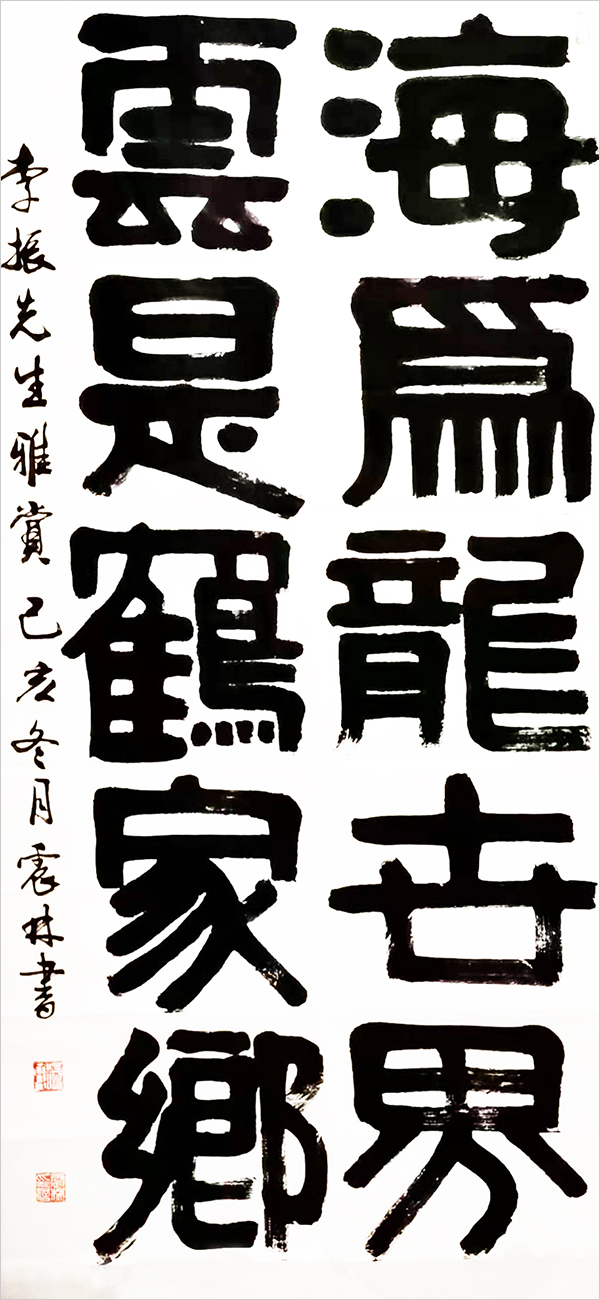 海為龍世界
雲是鶴家鄉
李振先生雅賞己亥冬月震林書